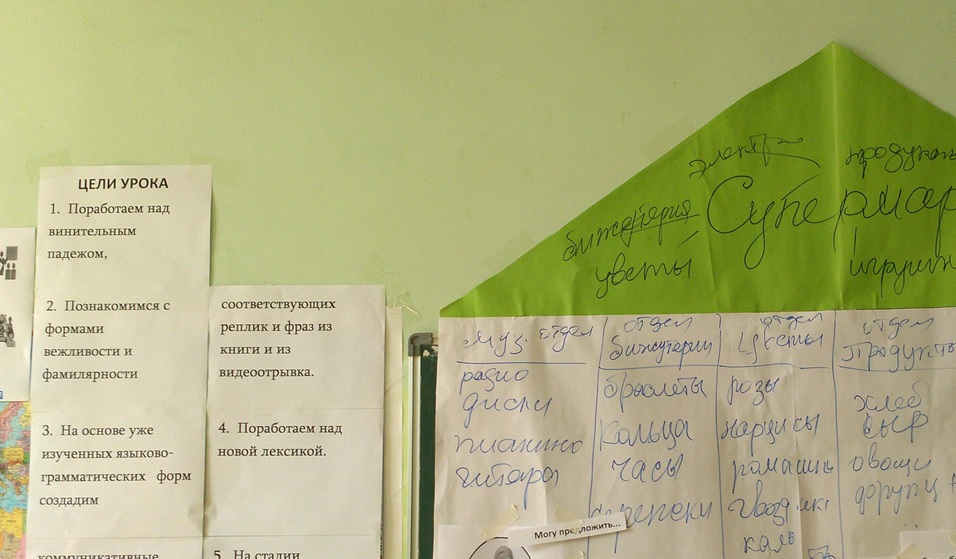 ЦЕЛИ УРОКА
1. Поработаем над
винительным
падежом,
2. Познакомимся с
формами
вежливости и
фамилярности
3. На основе уже
изученных языково-
грамматических форм
создадим
коммуникативные
соответствующих
реплик и фраз из
книги и из
видеоотрывка.
4. Поработаем над
новой лексикой.
5. На стадии
электр
продукты
бижутерия
Супермар
цветы
муз. отдел
радио
диски
пианино
гитара
отдел
бижутерии
браслеты
кольца
часы
отдел
цветы
розы
нарцисы
ромашки
гвоздики
отдел
продукты
хлеб
сыр
овощи
Могу предложить...